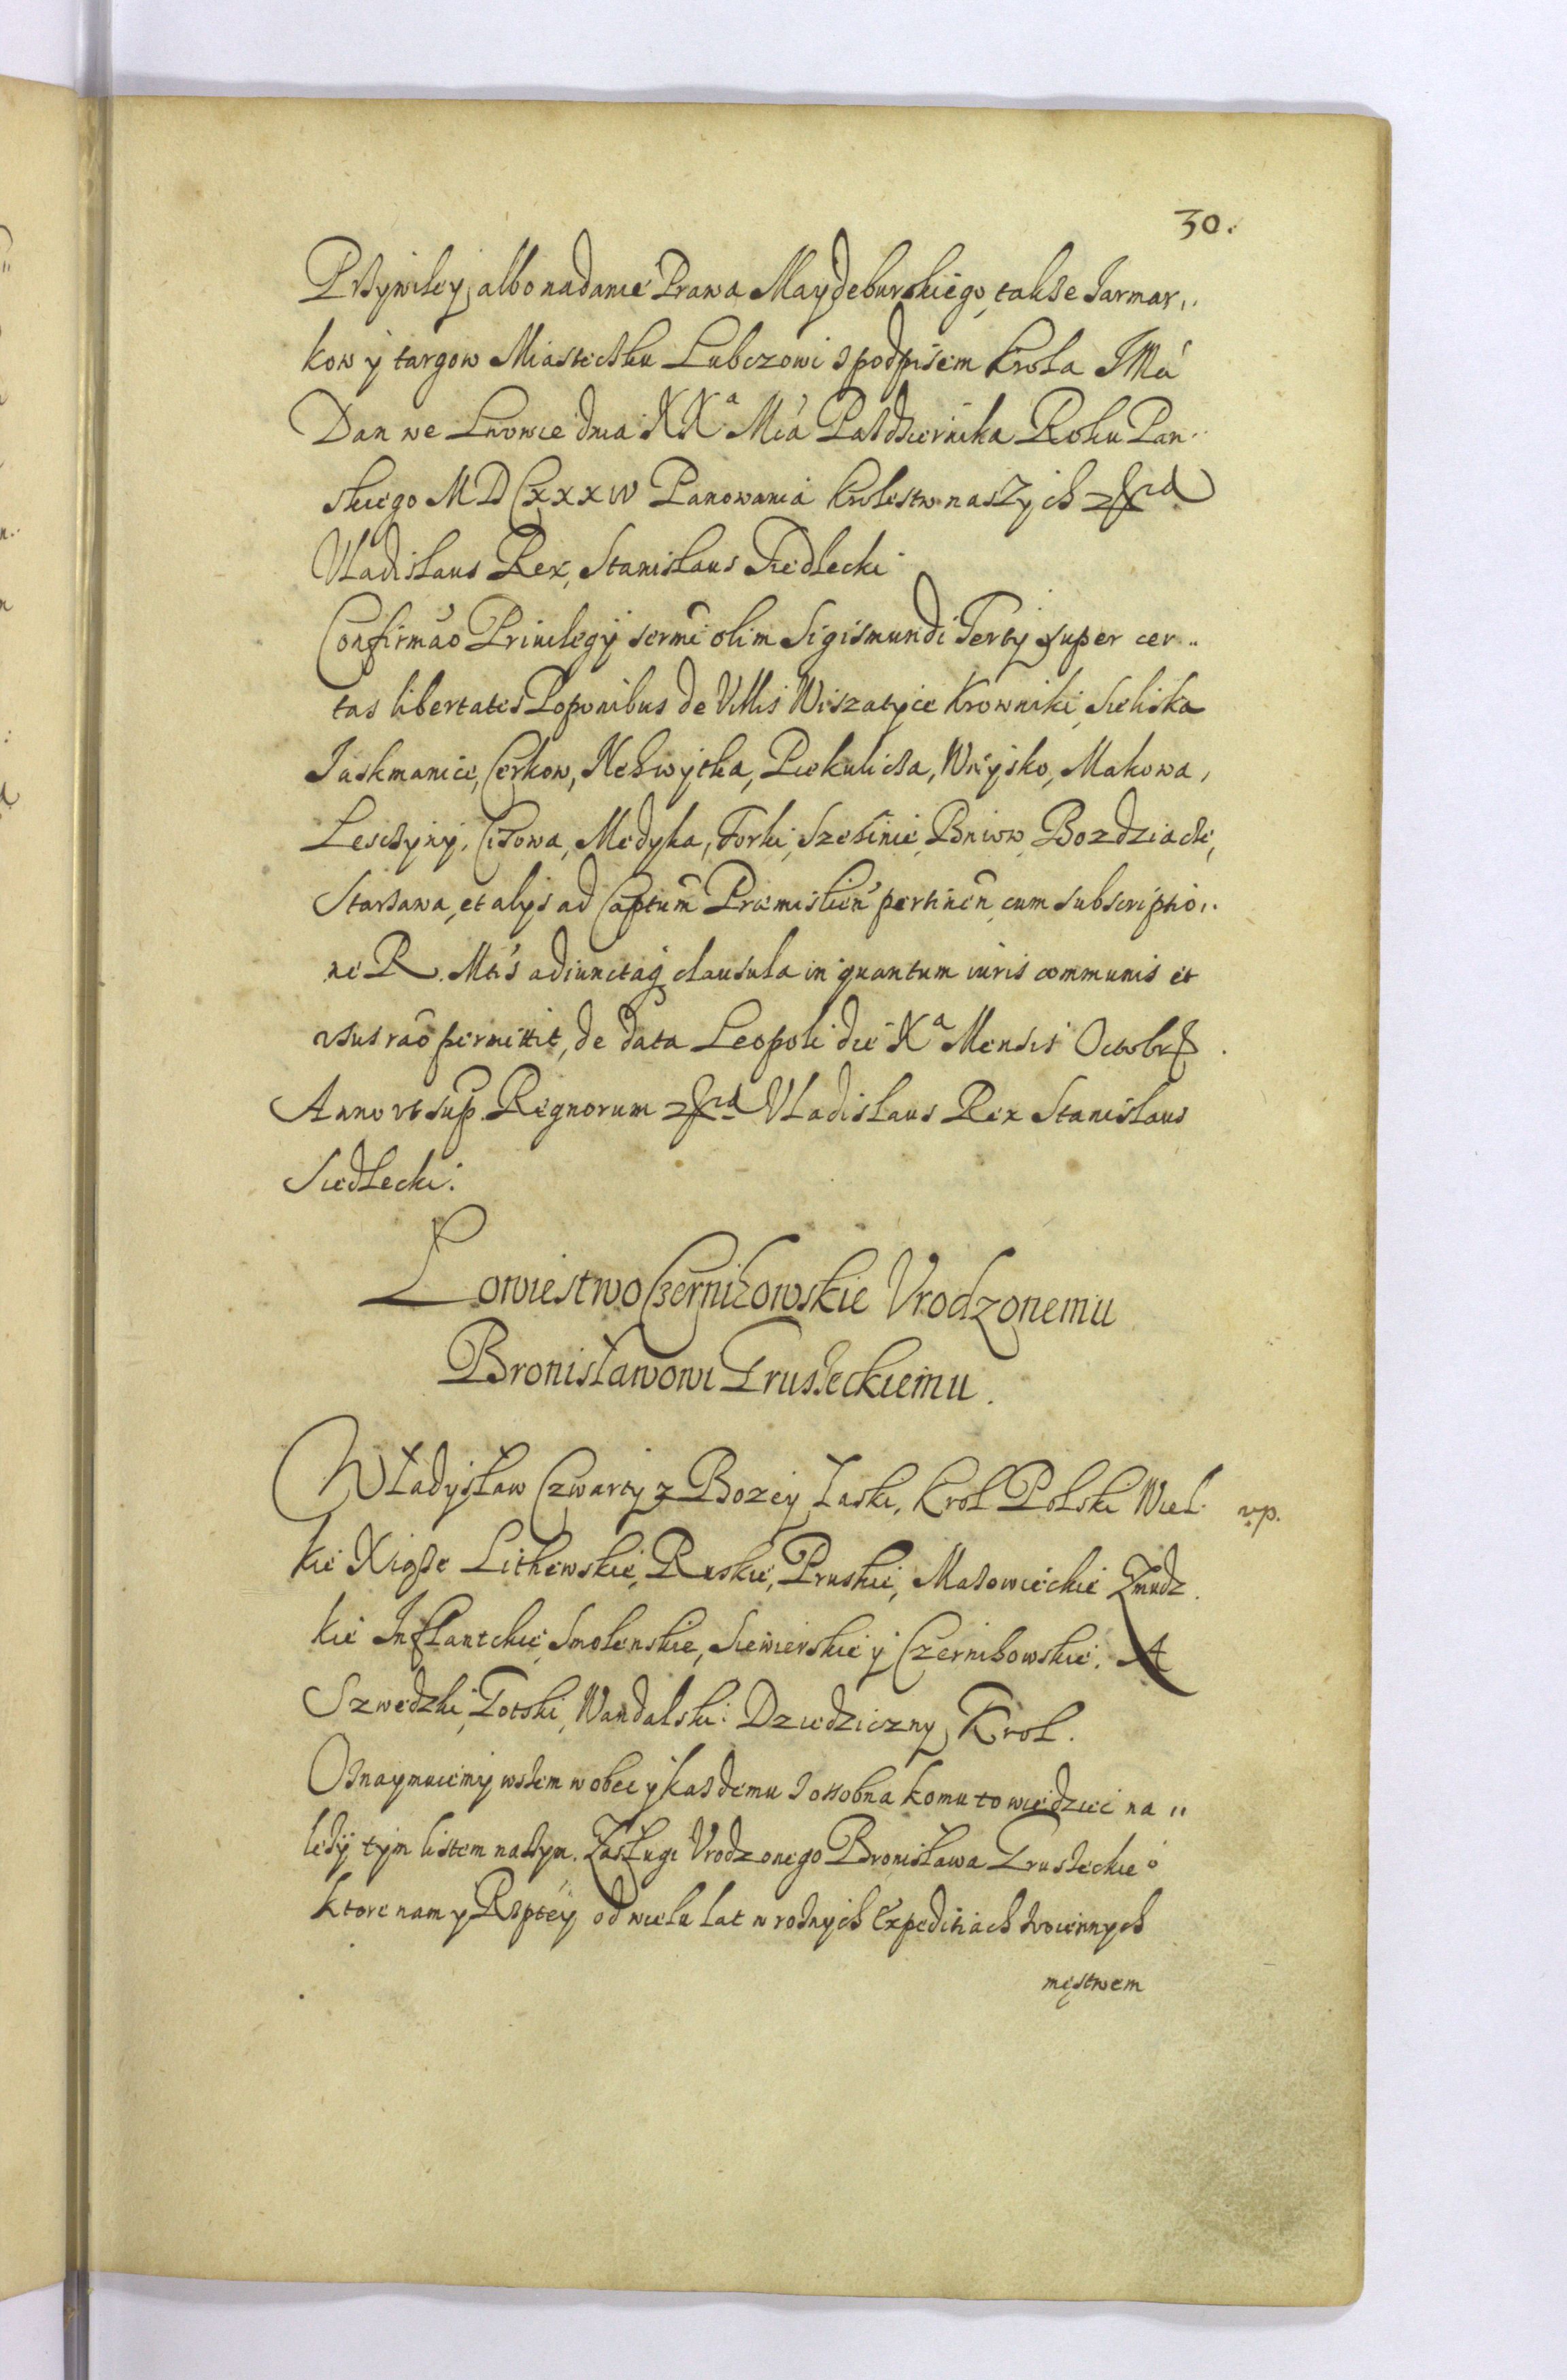 30.
Przywiley albo nadanie Prawa Maydeburskiego, takze Iarmar,,
kow y targow Miasteczku Lubczowi z podpisem Krola JMci
Dan we Lwowie dnia XXa Mca Pazdziernika Roku Pan..
skiego MDCxxxiv Panowania Krolestw naszych
Vladislaus Rex, Stanislaus Siedlecki
Confirmao Priuilegij sermi olim Sigismundi Tertij super cer..
tas libertates Poponibus de Villis Wiszatyce Krowniki, Sieliska
Iaskmanice, Cerkow, Nehwytka, Piekulicza, Woysko, Makowa,
Lesczyny, Cisowa, Medyka, Torki, Szehinie, Pniow, Bozdziacze,
Starzawa, et alijs ad Captum Premislien pertinen, cum subscriptio,,
ne R. Mtis adiunctaq clausula in quantum iuris communis et
vsus rao permittit, de data Leopoli die Xa Mensis Octobr
Anno vt sup. Regnorum Vladislaus Rex Stanislaus
Siedlecki.
Lowiestwo Czernihowskie Vrodzonemu
Bronisławowi Gruszeckiemu.
Władysław Czwarty z Bozey Łaski, Krol Polski Wiel. vp.
kie Xiąze Lithewskie, Ruskie, Pruskie, Mazowieckie Zmudz.
kie Inflantckie, Smolenskie, Siewierskie y Czernihowskie. A
Szwedzki, Gotski, Wandalski: Dziedziczny Krol.
Oznaymuiemy wszem wobec y kazdemu zossobna komu to wiedziec na,,
lezy tym listem naszym. Zasługi Vrodzonego Bronisława Gruszeckieo
ktore nam y Rzptey od wielu lat w roznych Expeditiach woiennych
męstwem